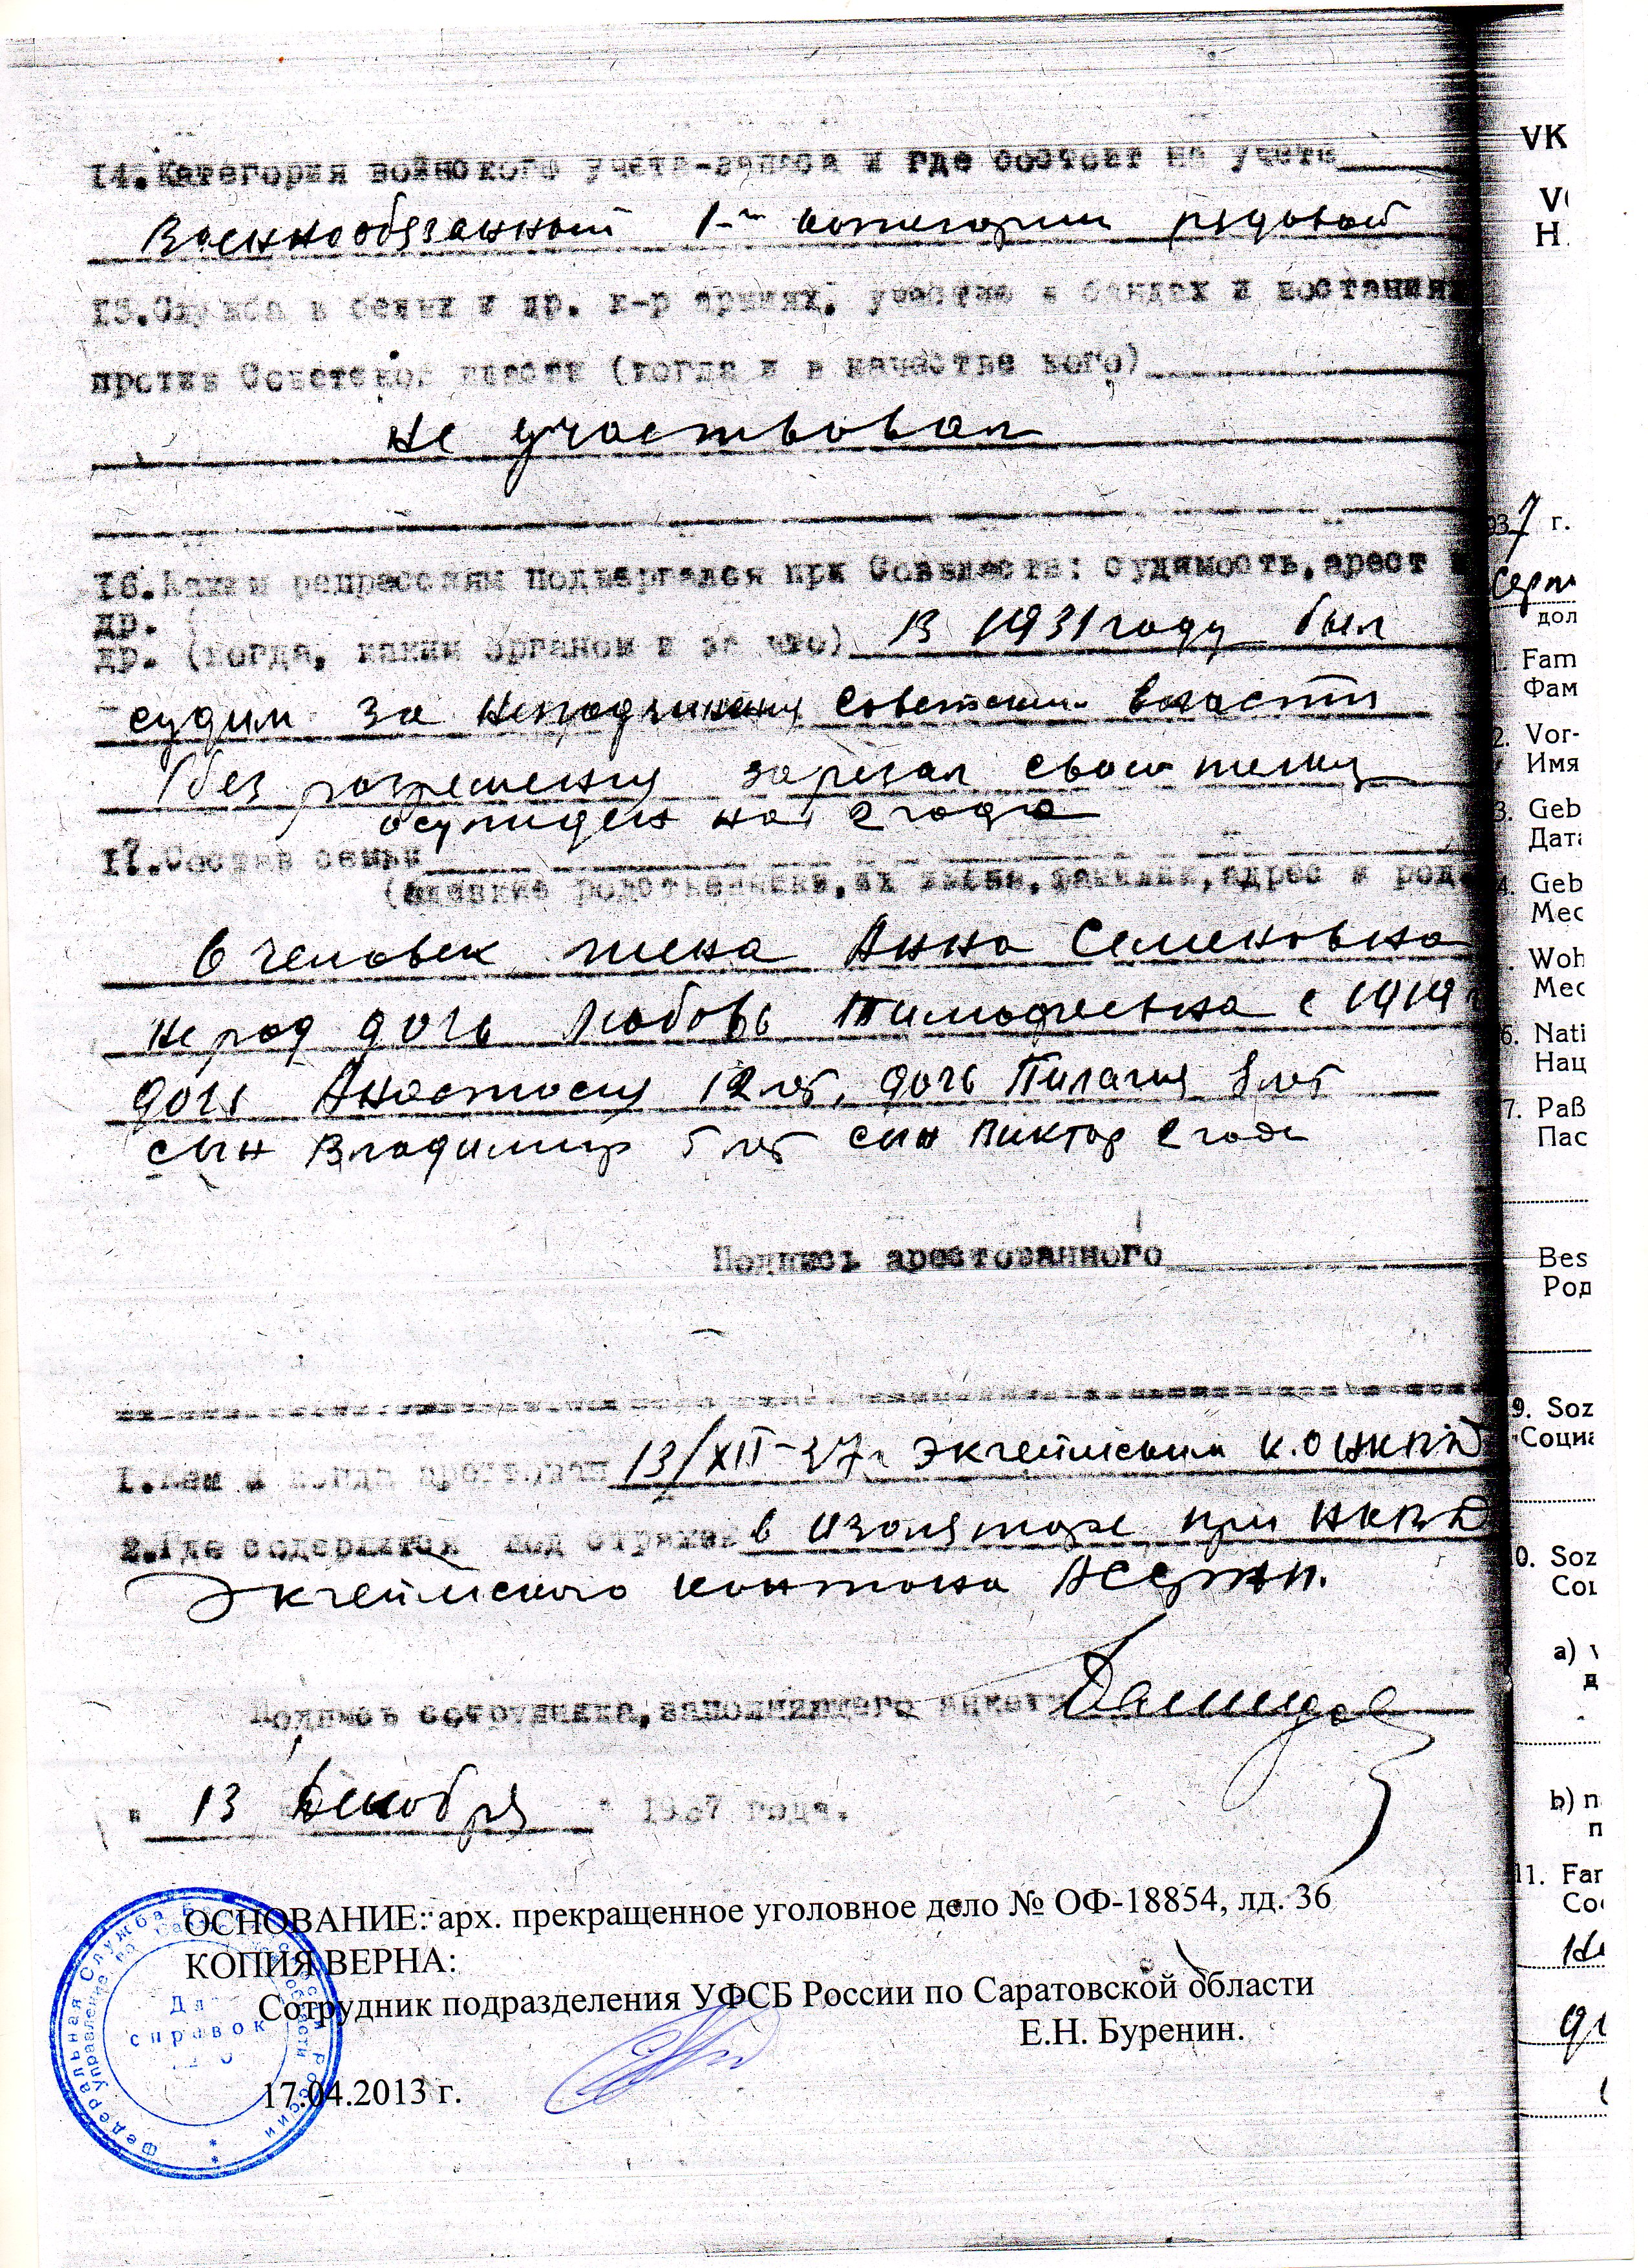 14.Категория воинского учета-запаса и где состоит на учете
Военнообязанный 1-й категории рядовой
15.Служба в белых и др. к-р армиях, участие в бандах и востаниях
против Советской власти (когда и в качестве кого)
не участвовал
16.Каким репрессиям подвергался при Совввласти: судимость,арест и
др.
др. (когда, каким органом и за что) В 1931 году был
судим за неподчинения Советским власти
(без разрешения зарезал свою телку
осужден на 2 года
17.Состав семьи
(близкие родственники,их имена,фамилии,адрес и род
6 человек жена Анна Семеновна
дочь Любовь Тимофеевна с 1919 г
дочь Анастасия 12 лет, дочь Пилагия 8 лет
сын Владимир 5 лет сын Виктор 2 года
Подпись арестованного
1.Кем и когда арестован 13/XII-37г Экгеймским К.О НКВД
2.Где содержится под стражей в изоляторе при НКВД
Экгеймского кантона АССРНП.
Подпись сотрудника,заполнившего анкету
" 13 Декабря " 1937 года.
ОСНОВАНИЕ: арх. прекращенное уголовное дело № ОФ-18854, лд. 36
КОПИЯ ВЕРНА:
Сотрудник подразделения УФСБ России по Саратовской области
Е.Н. Буренин.
17.04.2013 г.
Федеральная Служба Безопасности России
Управление по Саратовской области
Для
справок
VK
H
7 г.
дол
1. Fam
Фам
2. Vor-
Имя
3. Geb
Дата
4. Geb
Мес
Woh
Мес
6. Nati
Нац
7. Paß
Пас
Bes
Род
9. Soz
Социа
10. Soz
Соц
a)
b) п
п
11. Far
Со